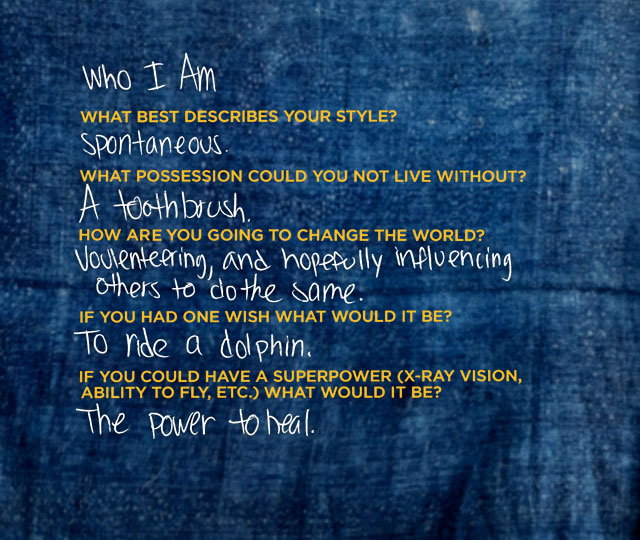 Who I Am
WHAT BEST DESCRIBES YOUR STYLE?
Spontaneous.
WHAT POSSESSION COULD YOU NOT LIVE WITHOUT?
A toothbrush.
HOW ARE YOU GOING TO CHANGE THE WORLD?
Voulenteering, and hopefully influencing
others to do the same.
IF YOU HAD ONE WISH WHAT WOULD IT BE?
To ride a dolphin.
IF YOU COULD HAVE A SUPERPOWER (X-RAY VISION,
ABILITY TO FLY, ETC.) WHAT WOULD IT BE?
The power to heal.